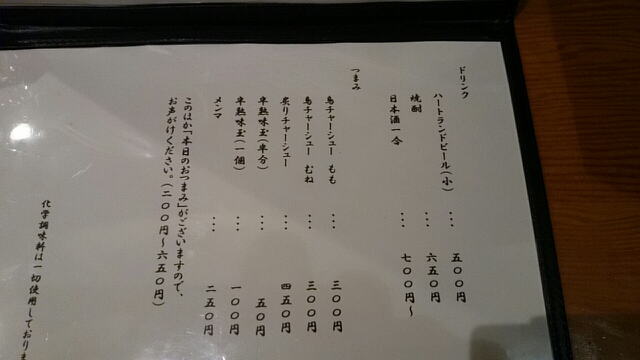 ドリンク
ハートランドビール(小) ・・・ 五〇〇円
焼酎 ・・・ 六五〇円
日本酒一合 ・・・ 七〇〇円〜
つまみ
鳥チャーシュー もも ・・・ 三〇〇円
鳥チャーシュー むね ・・・ 三〇〇円
炙りチャーシュー ・・・ 四五〇円
半熟味玉(半分) ・・・ 五〇円
半熟味玉(一個) ・・・ 一〇〇円
メンマ ・・・ 二五〇円
このほか「本日のおつまみ」がございますので、
お声がけください。(二〇〇円〜六五〇円)
化学調味料は一切使用しておりま